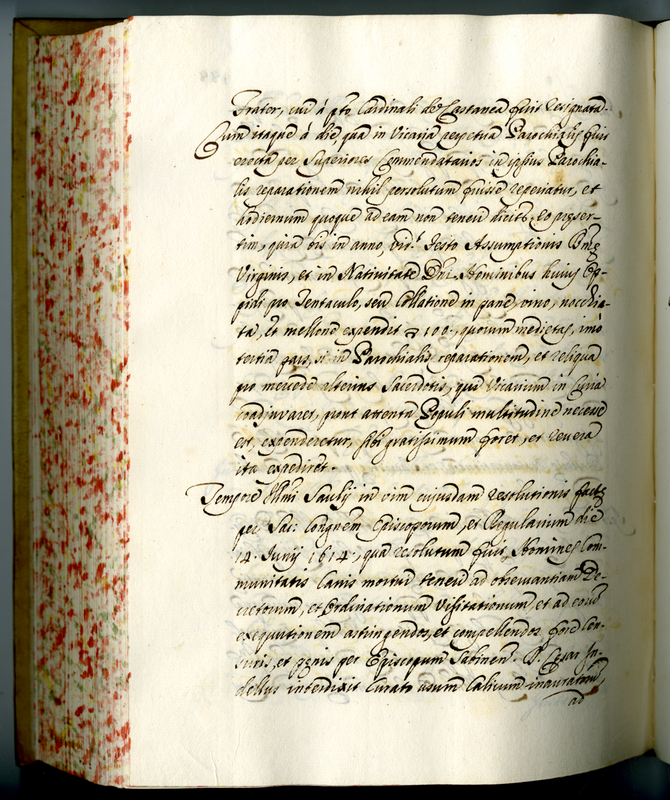 Frater, cui à pto Cardinali de Castanea fuit resignata.
Cum itaque à die, qua in Vicaria perpetua Parochialis fuit
erecta per Superiores Commendatarios in ipsius Parochia-
lis reparationem nihil persolutum fuisse reperiatur, et
hodiernum quoque ad eam non teneri dicat, eo preser-
tim, quia bis in anno, in Festo Assumptionis Bme
Virginis, et in Nativitate Dni Hominibus huius Op-
pidi pro Jentaculo, seu Collatione in pane, vino, nocchia-
ta, et mellone expendit 100., quorum medietas, imò
tertia pars, si in Parochialis reparationem, et reliqua
pro mercede alterius Sacerdotis, qui Vicarium in Curia
coadiuvaret, prout attenta Populi multitudine necesse
est, expenderetur, sibi gratissimum foret, et revera
ita expediret.
Tempore Illmi Saulij in vim cuiusdam resolutionis facte
per Sac: Congnem Episcoporum, et Regularium die
14. Junij 1614., qua resolutum fuit, Homines Com-
munitatis Canis mortui teneri ad observantiam De-
cretorum, et Ordinationum Visitationum, et ad eorum
exequutionem astringendos, et compellendos fore Cen-
suris, et penis per Episcopum Sabinen. D. Cesar Fi-
dellus interdixit Curato usum Calicum inauratorum,
ad